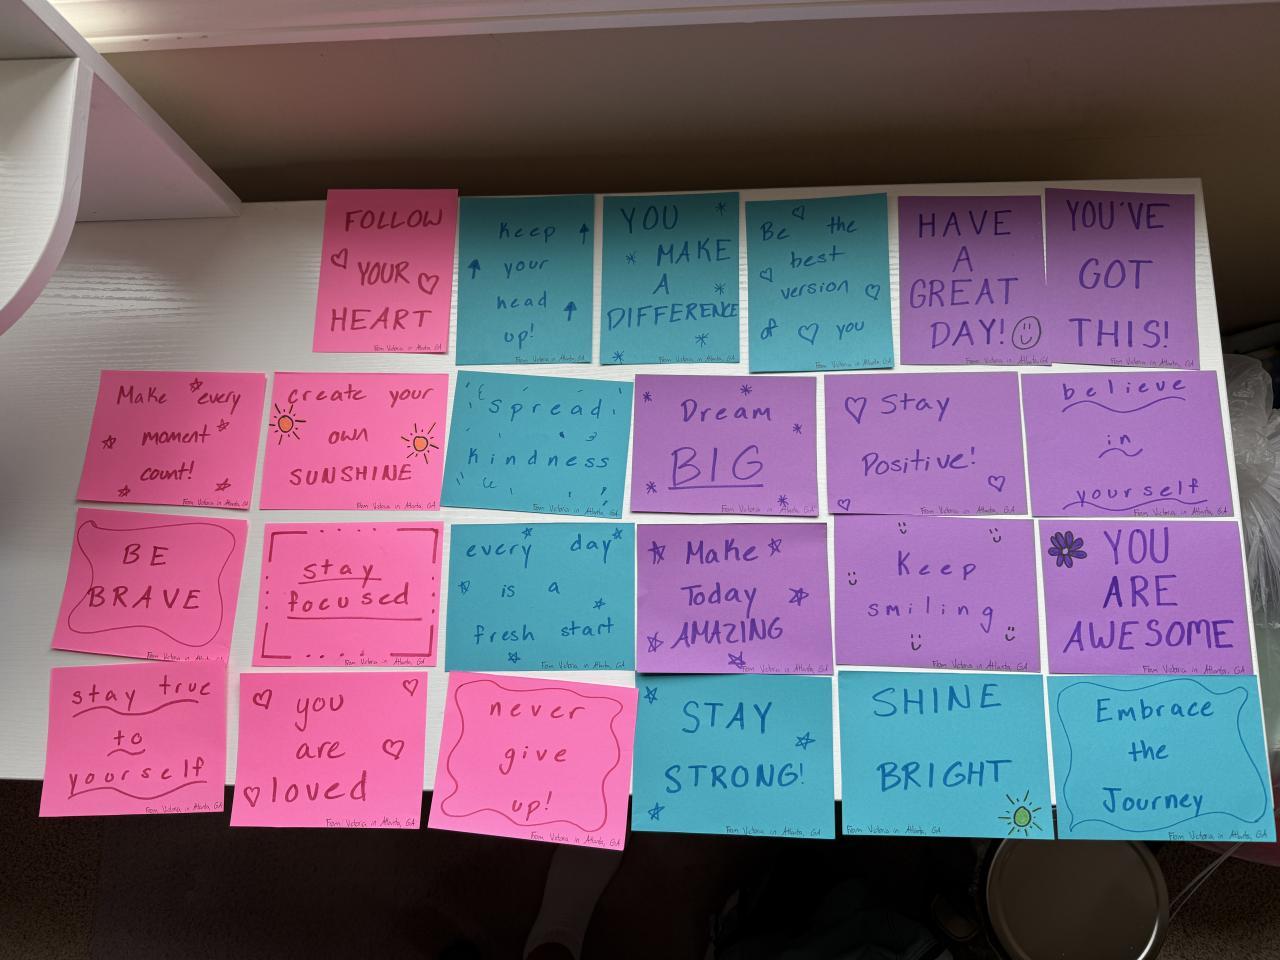 FOLLOW
YOUR
HEART
From Victoria in Atlanta, GA
Keep
your
head
up!
From Victoria in Atlanta, GA
YOU
MAKE
A
DIFFERENCE
From Victoria in Atlanta, GA
Be the
best
version
of you
From Victoria in Atlanta, GA
HAVE
A
GREAT
DAY!
From Victoria in Atlanta, GA
YOU'VE
GOT
THIS!
From Victoria in Atlanta, GA
Make every
moment
count!
From Victoria in Atlanta, GA
create your
own
SUNSHINE
From Victoria in Atlanta, GA
Spread
kindness
From Victoria in Atlanta, GA
Dream
BIG
From Victoria in Atlanta, GA
Stay
Positive!
From Victoria in Atlanta, GA
believe
in
yourself
From Victoria in Atlanta, GA
BE
BRAVE
From Victoria in Atlanta, GA
stay
focused
From Victoria in Atlanta, GA
every day
is a
fresh start
From Victoria in Atlanta, GA
Make
Today
AMAZING
From Victoria in Atlanta, GA
Keep
smiling
From Victoria in Atlanta, GA
YOU
ARE
AWESOME
From Victoria in Atlanta, GA
stay true
to
yourself
From Victoria in Atlanta, GA
you
are
loved
From Victoria in Atlanta, GA
never
give
up!
From Victoria in Atlanta, GA
STAY
STRONG!
From Victoria in Atlanta, GA
SHINE
BRIGHT
From Victoria in Atlanta, GA
Embrace
the
Journey
From Victoria in Atlanta, GA